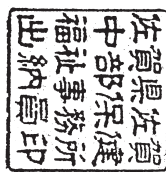 佐賀県佐賀
中部保健
福祉事務所
出納員印